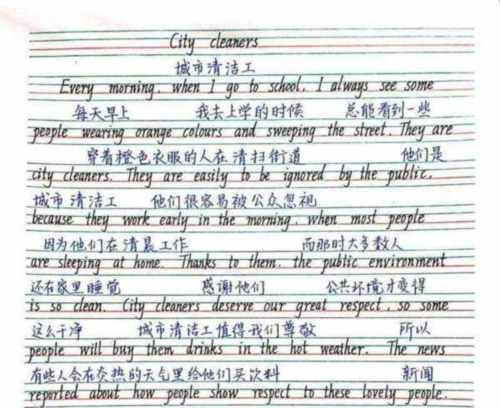 City cleaners
城市清洁工
Every morning, when I go to school, I always see some
每天早上 我去上学的时候 总能看到一些
people wearing orange colours and sweeping the street. They are
穿着橙色衣服的人在清扫街道 他们是
city cleaners. They are easily to be ignored by the public,
城市清洁工 他们很容易被公众忽视
because they work early in the morning, when most people
因为他们在清晨工作 而那时大多数人
are sleeping at home. Thanks to them, the public environment
还在家里睡觉 感谢他们 公共环境才变得
is so clean. City cleaners deserve our great respect, so some
这么干净 城市清洁工值得我们尊敬 所以
people will buy them drinks in the hot weather. The news
有些人会在炎热的天气里给他们买饮料 新闻
reported about how people show respect to these lovely people.